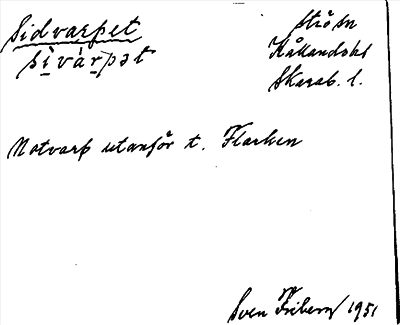 Sidvarpet
sìvàrpət
Strö sn
Kållandshd
Skarab. l.
Notvarp utanför t. Flarken
Sven Friberg 1951